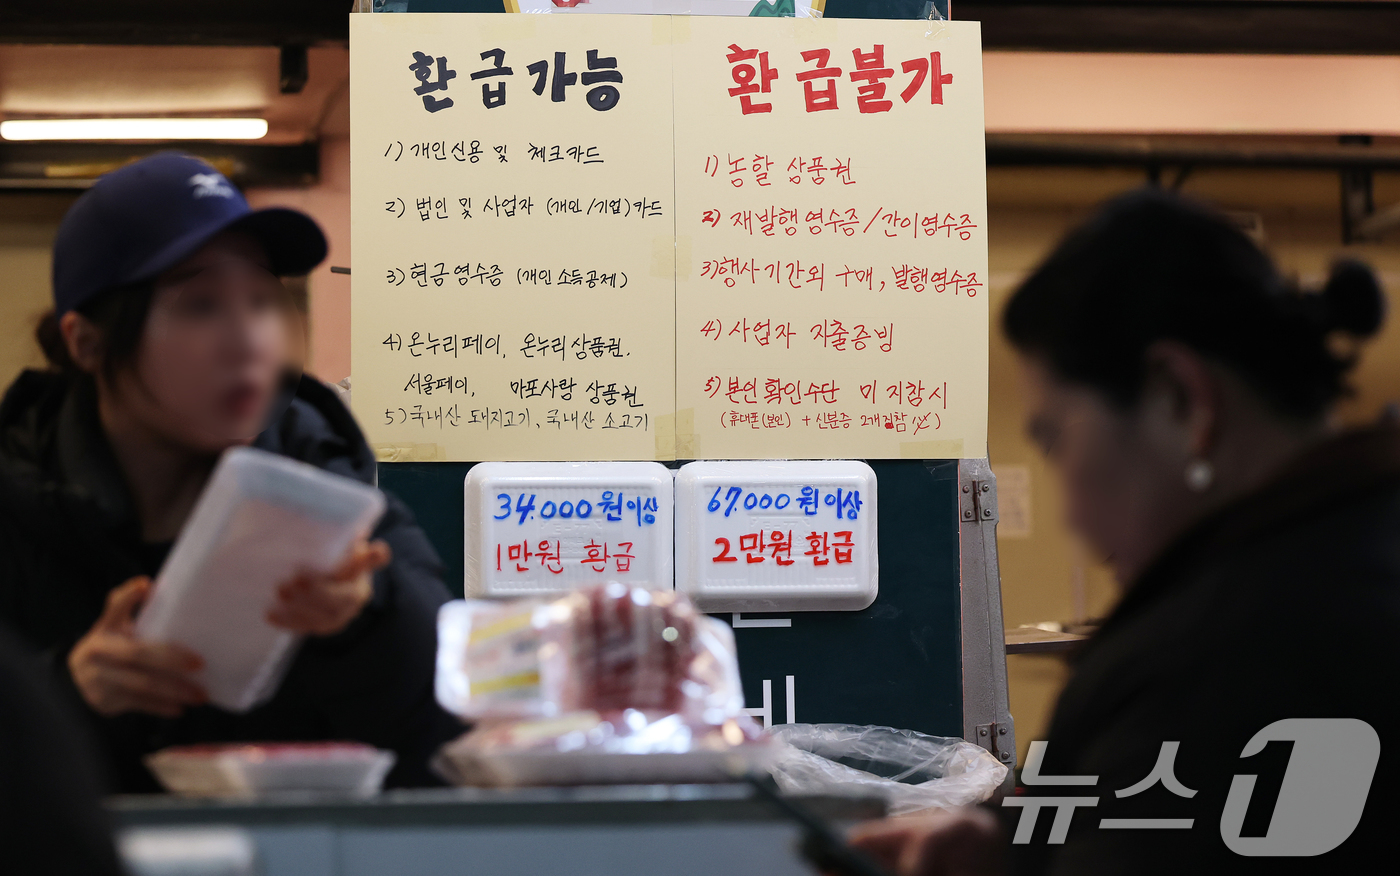 환급가능
1) 개인신용 및 체크카드
2) 법인 및 사업자 (개인/기업)카드
3) 현금영수증 (개인소득공제)
4) 온누리페이, 온누리상품권.
서울페이, 마포사랑 상품권
5) 국내산 돼지고기, 국내산 소고기
환급불가
1) 농할 상품권
2) 재발행영수증/간이영수증
3) 행사기간외 구매, 발행영수증
4) 사업자 지출증빙
5) 본인확인수단 미 지참시
(휴대폰(본인) + 신분증 2개지참
34.000원이상
1만원 환급
67.000원이상
2만원 환급
뉴스1